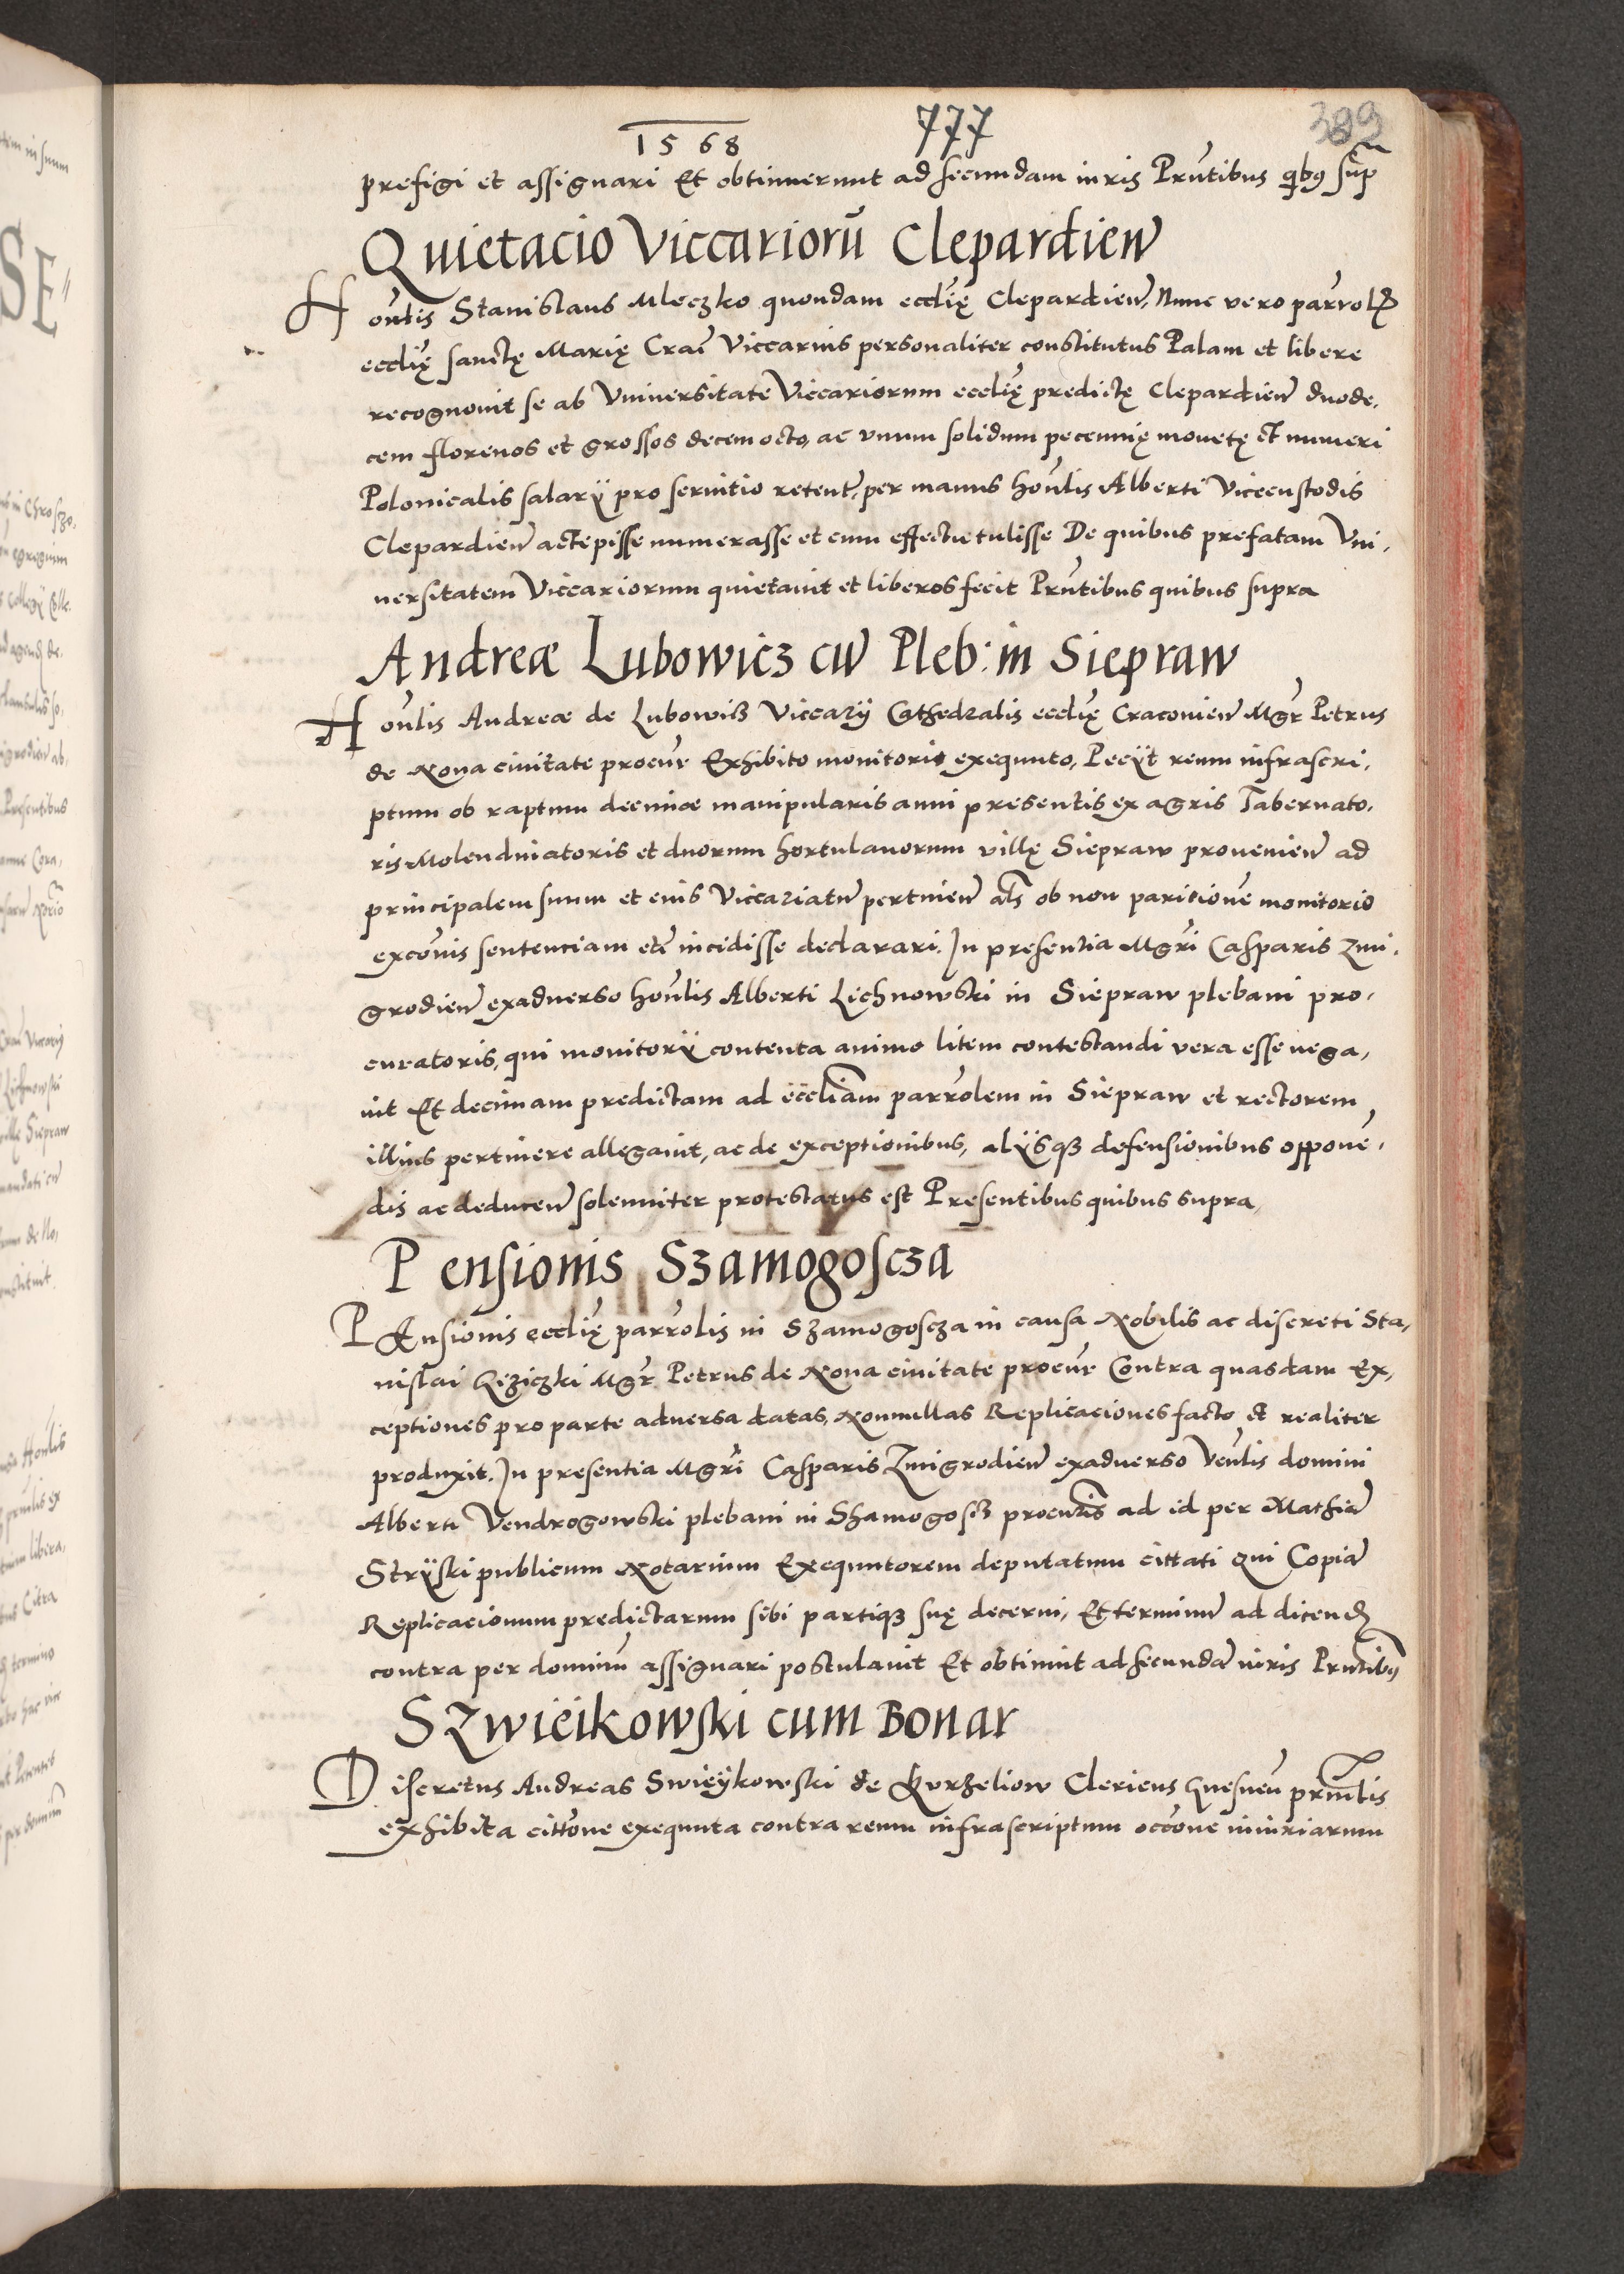 1568 777 389
prefigi et assignari Et obtinuerunt ad secundam iuris Pr̃ntibus qibꝯ sup̃
Quietacio Viccariorū Clepardieñ
Hoñlis Stanislaus Mleczko quondam eccl̃ię Clepardieñ, Nunc vero parrol̃
eccl̃ię sanctę Marię Crac̃ Viccarius personaliter constitutus Palam et libere
recognouit se ab Vniuersitate Viccariorum eccl̃ię predictę Clepardieñ duode,
cem florenos et grossos decem octo, ac vnum solidum pecennię monetę et numeri
Polonicalis salarÿ pro seruitio retent̃, per manus hoñlis Alberti Vicecustodis
Clepardieñ accepisse numerasse et cum effectu tulisse De quibus prefatam Vni,
uersitatem Viccariorum quietauit et liberos fecit Pr̃ntibus quibus supra
Andreæ Lubowicz cũ Pleb: in Siepraw
Hoñlis Andreæ de Lubowicz Viccarÿ Cathedralis eccl̃ię Cracouieñ Mgr̃ Petrus
de Noua ciuitate procur̃ Exhibito monitorio exequuto, Pecÿt reum infrascri,
ptum ob raptum decimæ manipularis anni presentis ex agris Tabernato,
ris Molendinatoris et duorum hortulanorum villę Siepraw prouenieñ ad
principalem suum et eius Viccariatũ pertineñ al̃s ob non paricionẽ monitorio
excõnis sentenciam etc̃ incidisse declarari. In presentia Mgr̃i Casparis Zmi,
grodieñ exaduerso hoñlis Alberti Lichnowski in Siepraw plebani pro,
curatoris, qui monitorÿ contenta animo litem contestandi vera esse nega,
uit Et decimam predictam ad eccl̃iam parrõlem in Siepraw et rectorem
illius pertinere allegauit, ac de exceptionibus, alÿsqꝫ defensionibus opponẽ,
dis ac deduceñ solenniter protestatus est Presentibus quibus supra,
Pensionis Szamogoscza
PEnsionis eccl̃ię parrõlis in Szamogoscza in causa Nobilis ac discreti Sta,
nislai Liziczki Mgr̃ Petrus de Noua ciuitate procur̃ Contra quasdam Ex,
ceptiones pro parte aduersa datas, Nonnullas Replicaciones facto et realiter
produxit. In presentia Mgr̃i Casparis Zmigrodieñ exaduerso Veñlis domini
Alberti Vendrogowski plebani in Shamogoscz procur̃is ad id per Mathiã
Strÿski publicum Notarium Exequutorem deputatum cittati Qui Copiã
Replicacionum predictarum sibi partiqꝫ suę decerni, Et terminũ ad dicend̃
contra per dominũ assignari postulauit Et obtinuit ad secundã iuris Pr̃ntibꝯ
SZwieikowski cum Bonar
Discretus Andreas Swieÿkowski de Kurzeliow Clericus Gnesneñ prin̄lis
exhibita cittõne exequuta contra reum infrascriptum occõne iniuriarum